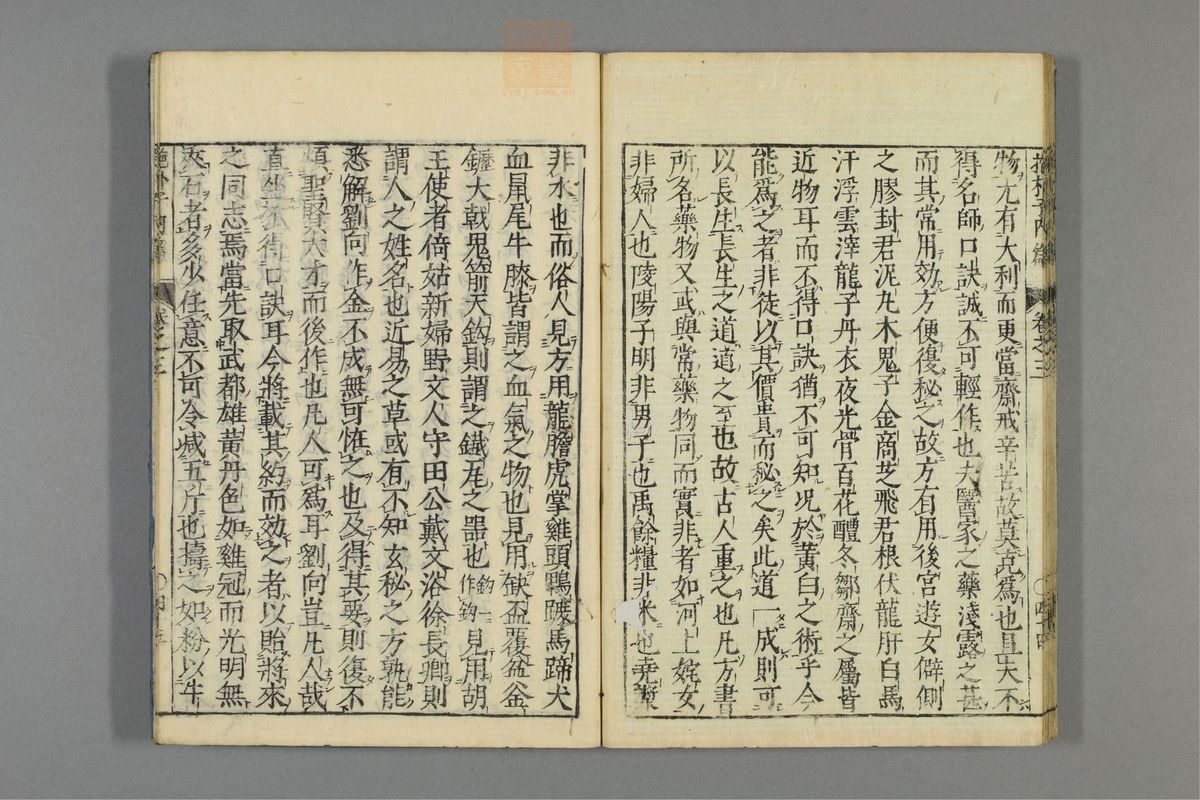 抱朴子內篇 卷之三 〇四十四
物尤有大利而更當齋戒辛苦故莫克爲也且夫不
得名師口訣誠不可輕作也夫醫家之藥淺露之甚
而其常用効方便復秘之故方有用後宮遊女僻側
之膠封君泥丸木鬼子金商芝飛君根伏龍肝白馬
汗浮雲滓龍子丹衣夜光骨百花醴冬鄒齋之屬皆
近物耳而不得口訣猶不可知况於黃白之術乎今
能爲之者非徒以其價貴而秘之矣此道一成則可
以長生長生之道道之至也故古人重之也凡方書
所名藥物又或與常藥物同而實非者如河上姹女
非婦人也陵陽子明非男子也禹餘糧非米也堯漿
非水也而俗人見方用龍膽虎掌雞頭鴨蹠馬蹄犬
血鼠尾牛膝皆謂之血氣之物也見用缺盃覆盆釜
䥶大戟鬼箭天鈎則謂之鐵瓦之噐也鈎一作鈎見用胡
王使者倚姑新婦野文人守田公戴文浴徐長卿則
謂人之姓名也近易之草或有不知玄秘之方孰能
悉解劉向作金不成無可怪之也及得其要則復不
煩聖賢大才而後作也凡人可爲耳劉向豈凡人哉
直坐不得口訣耳今將載其約而効之者以貽將來
之同志焉當先取武都雄黃丹色如雞冠而光明無
夾石者多少任意不可令减五斤也擣之如粉以牛